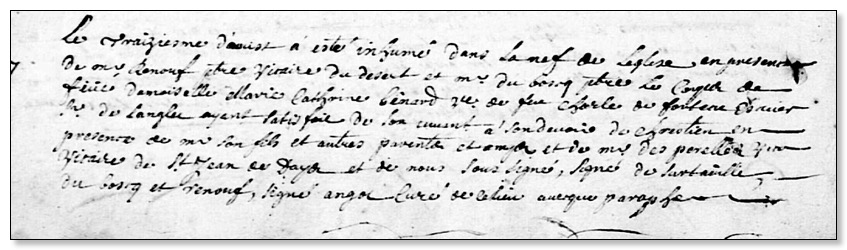 Le traiziesme d'aoust a esté inhumé dans la nef de leglise en presence
de mr Renouf ptre vicaire du desert et mr du boscq ptre le corps de
feüe damoiselle Marie Cathrine bénard vve de feu Charle de escuier
sr de Langle ayent satisfait de son vivant a son devoir de Chrestien en
presence de mr son fils et autres parents et amys et de mr des perelles
vicaire de St Jean de Daye et de nous sous signé, signé de Surtainville,
du boscq et Renouf, signé angot curé de ce lieu avecque paraphe